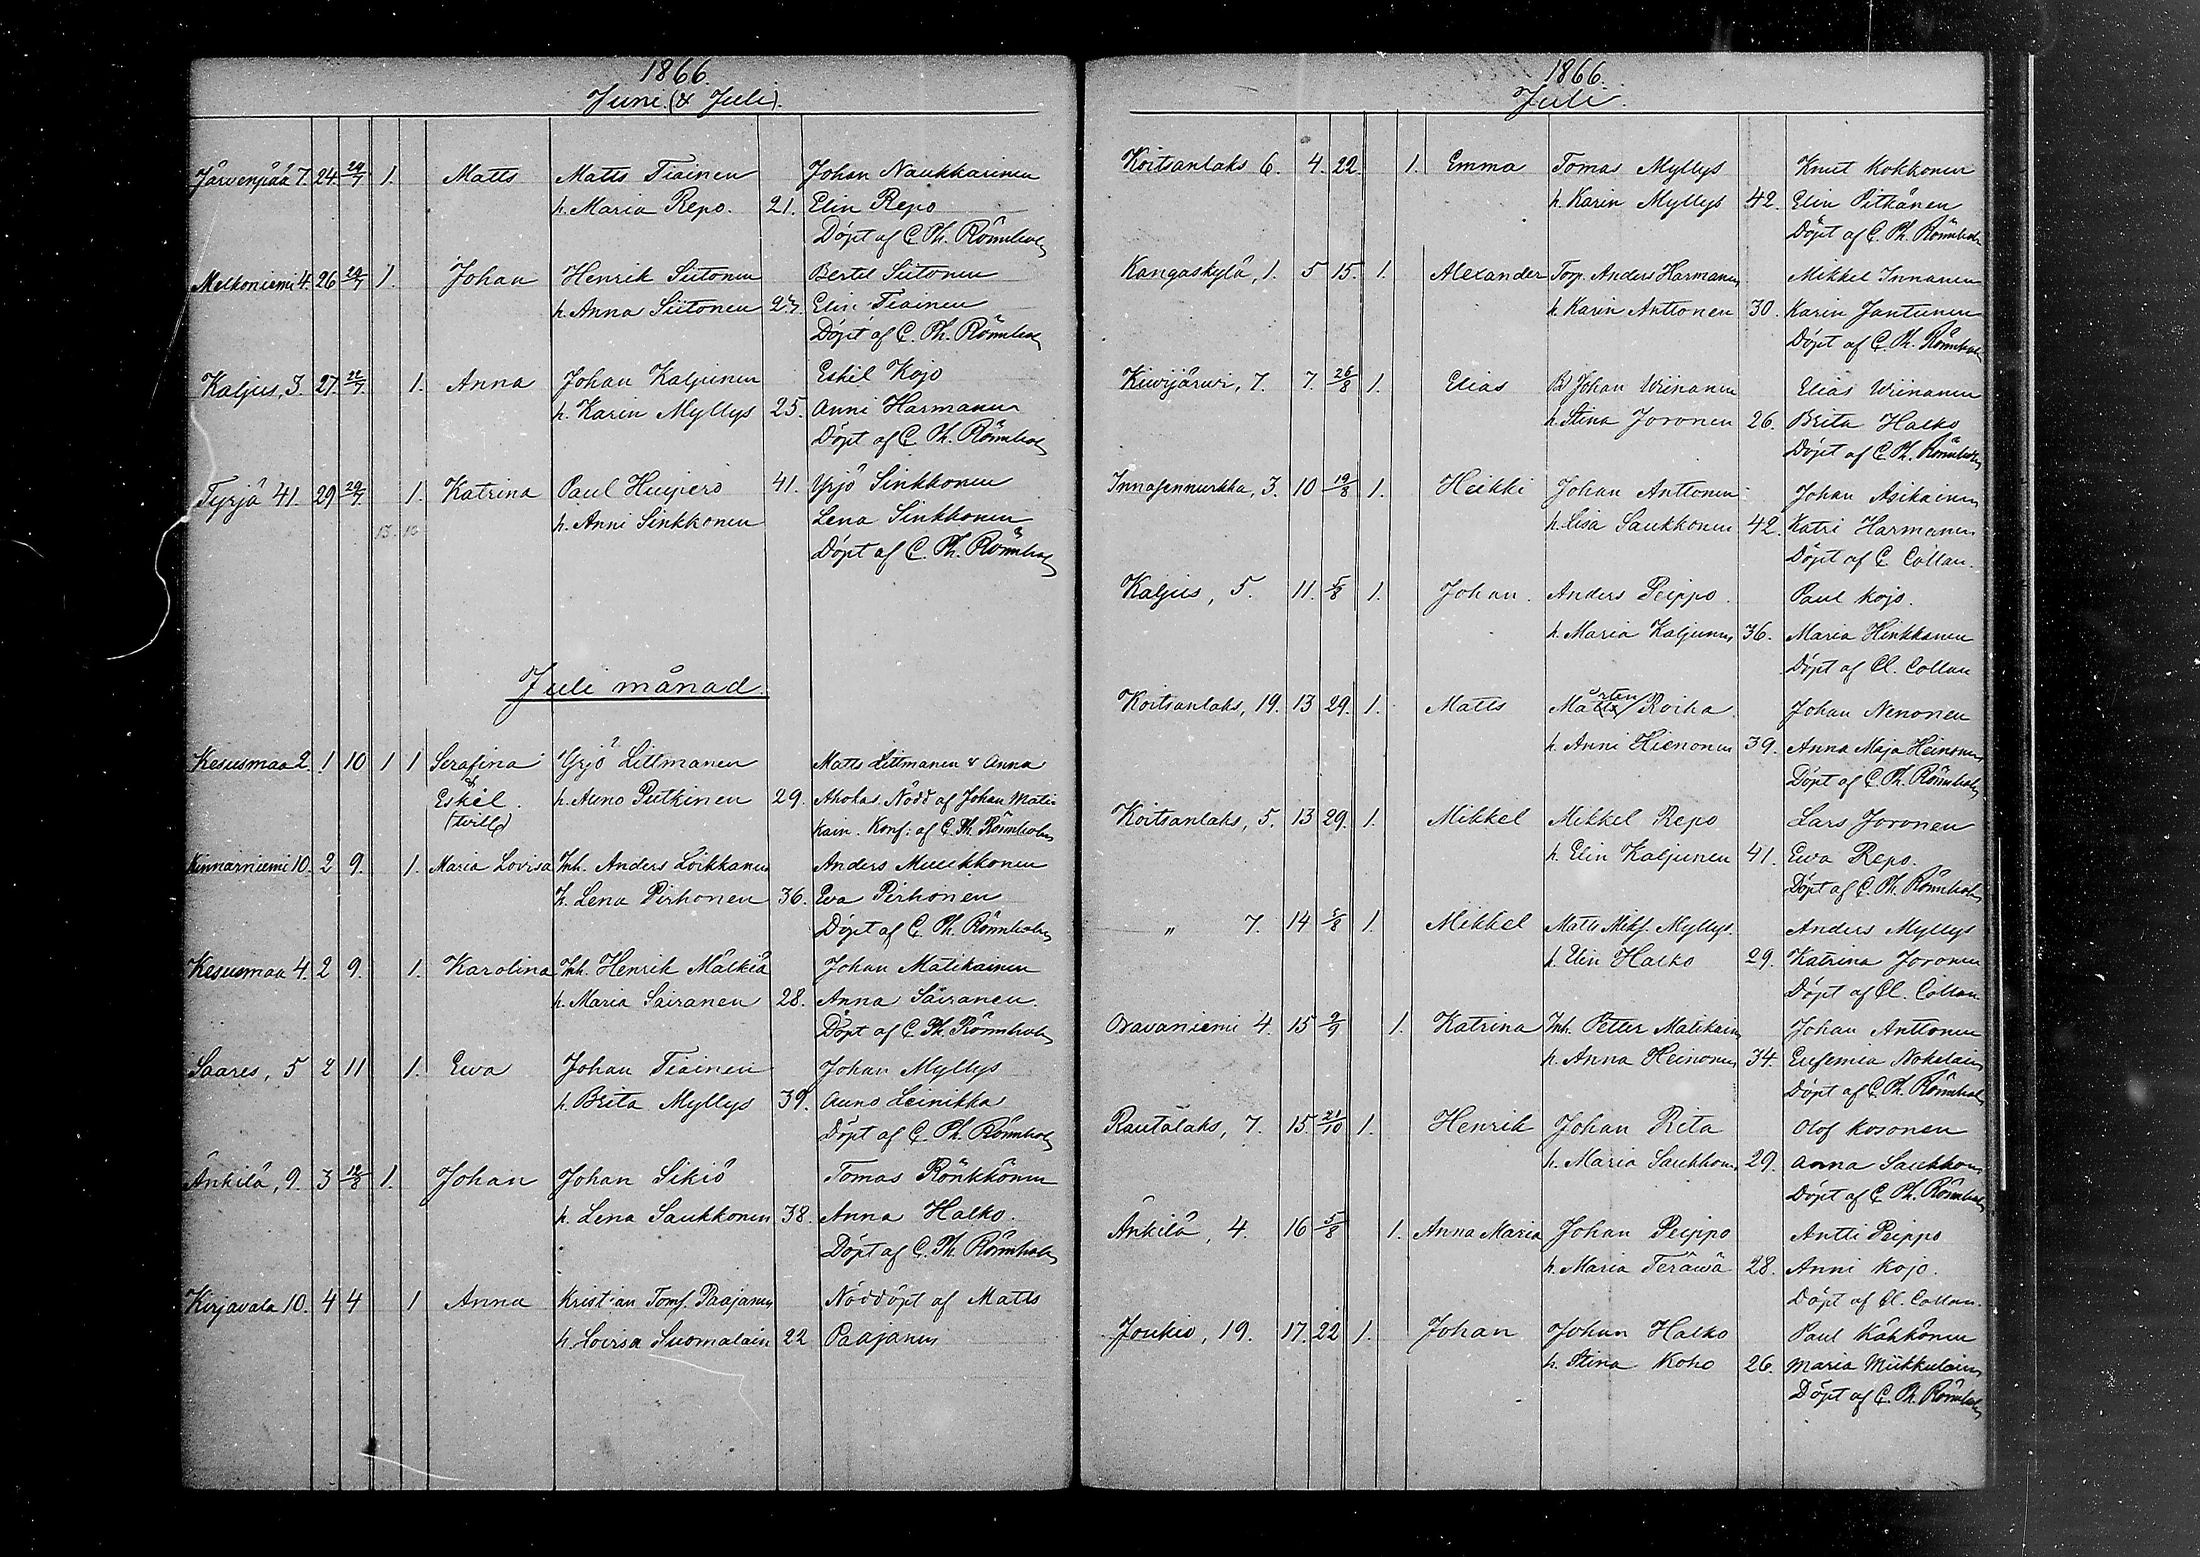 1866.
Juni (& Juli).
Järvenpää 7. 24 29/7 1. Matts Matts Tiainen Johan Naukkarinen
h. Maria Repo. 21. Elin Repo
Döpt af C. Th. Rönnholm
Melkoniemi 4. 26 29/7 1. Johan Henrik Siitonen Bertil Siitonen
h. Anna Siitonen 27. Elin Tiainen
Döpt af C. Th. Rönnholm
Kaljus, 3. 27 22/7 1. Anna Johan Kaljunen Eskil Kojo
h. Karin Myllys 25. Anni Harmanen
Döpt af C. Th. Rönnholm
Tyrjä 41. 29 29/7 1. Katrina Paul Huipero 41. Yrjö Sinkkonen
13. 10 h. Anni Sinkkonen Lena Sinkkonen
Döpt af C. Th. Rönnholm
Juli månad.
Kesusmaa 2. 1 10 1 1 Serafina Yrjö Littmanen Matts Littmanen & Anna
& Eskel. h. Auno Putkinen 29. Ahokas. Nödd af Johan Mati-
(tvill) kain. Konf. af C. Th. Rönnholm
Kinnarniemi 10. 2 9. 1. Maria Lovisa Inh. Anders Loikkanen Anders Muukkonen
h. Lena Pirhonen 36. Eva Pirhonen
Döpt af C. Th. Rönnholm
Kesusmaa 4. 2 9. 1. Karolina Inh. Henrik Mälkiä Johan Matikainen
h. Maria Sairanen 28. Anna Sairanen.
Döpt af C. Th. Rönnholm
Saares, 5 2 11 1. Ewa Johan Tiainen Johan Myllys
h. Brita Myllys 39. Auno Leinikka
Döpt af C. Th. Rönnholm
Änkilä, 9. 3 12/8 1. Johan Johan Sikiö Tomas Rönkkönen
h. Lena Saukkonen 38. Anna Halko.
Döpt af C. Th. Rönnholm
Kirjavala 10. 4 4 1 Anna Kristian Tomf. Paajanen Nöddöpt af Matts
h. Lovisa Suomalain 22 Paajanen
1866.
Juli.
Koitsanlaks 6. 4. 22. 1. Emma Tomas Myllys Knut Kokkonen
h. Karin Myllys 42. Elin Pitkänen
Döpt af C. Th. Rönnholm
Kangaskylä, 1. 5 15. 1. Alexander Torp. Anders Harmanen Mikkel Innanen
h. Karin Anttonen 30. Karin Jantunen
Döpt af C. Th. Rönnholm
Kiwijärwi, 7. 7. 26/8 1. Elias Johan Wiinanen Elias Wiinanen
h. Stina Joronen 26. Brita Halko
Döpt af C. Th. Rönnholm
Innasennurkka, 3. 10 19/8 1. Heikki Johan Anttonen Johan Asikainen
h. Lisa Saukkonen 42. Katri Harmanen
Döpt af C. Collan.
Kaljus, 5. 11. 5/8 1. Johan. Anders Peippo. Paul Kojo.
h. Maria Kaljunen 36. Maria Hinkkanen
Döpt af Cl. Collan
Koitsanlaks, 19. 13 29. 1. Matts Mårten Roiha. Johan Nenonen
h. Anni Hienonen 39. Anna Maja Heinonen
Döpt af C. Th. Rönnholm
Koitsanlaks, 5. 13 29. 1. Mikkel Mikkel Repo Lars Joronen
h. Elin Kaljunen 41. Ewa Repo.
Döpt af C. Th. Rönnholm
" 7. 14 5/8 1. Mikkel Matts Mikf. Myllys. Anders Myllys
h. Elin Halko 29. Katrina Joronen
Döpt af Cl. Collan
Oravaniemi 4. 15 9/9 1. Katrina Inh. Petter Matikain Johan Anttonen
h. Anna Heinonen 34. Eufemia Nokelain
Döpt af C. Th. Rönnholm
Rautalaks, 7. 15. 21/10 1. Henrik Johan Rita Olof Kosonen
h. Maria Saukkonen 29. Anna Saukkonen
Döpt af C. Th. Rönnholm
Änkilä, 4. 16 5/8 1. Anna Maria Johan Peippo Antti Peippo
h. Maria Teräwä 28. Anni Kojo.
Döpt af Cl. Collan.
Joukio, 19. 17. 22 1. Johan Johan Halko Paul Kähkönen
h. Stina Koho 26. Maria Miikkulain
Döpt af C. Th. Rönnholm